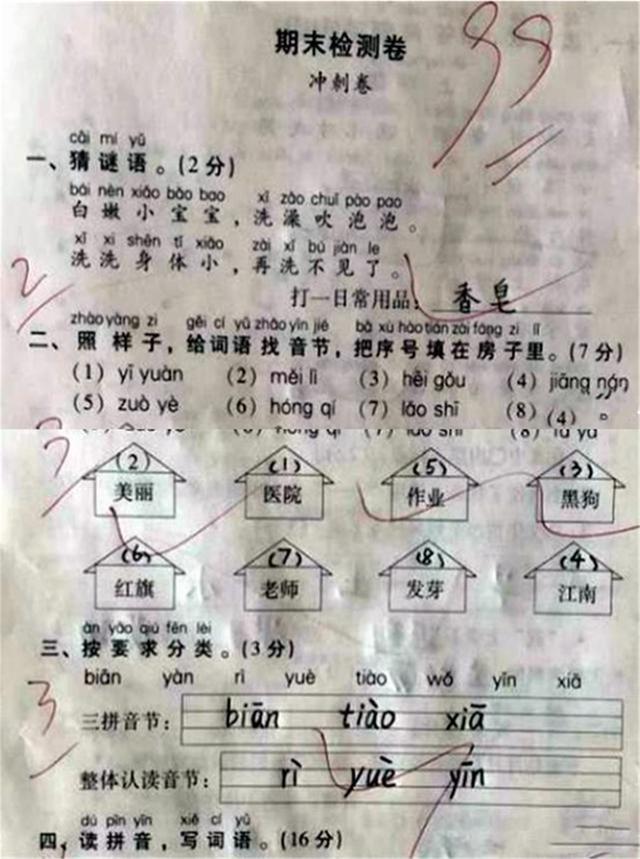 期末检测卷
冲刺卷
99
cāi mí yǔ
一、猜谜语。(2分)
bái nèn xiǎo bǎo bao xǐ zǎo chuī pào pao
白嫩小宝宝，洗澡吹泡泡。
xǐ xi shēn tǐ xiǎo zài xǐ bú jiàn le
洗洗身体小，再洗不见了。
2
打一日常用品：香皂
zhào yàng zi gěi cí yǔ zhǎo yīn jié bǎ xù hào tián zài fáng zi lǐ
二、照样子，给词语找音节，把序号填在房子里。(7分)
(1) yī yuàn (2) měi lì (3) hēi gǒu (4) jiāng nán
(5) zuò yè (6) hóng qí (7) lǎo shī (8) (4)
(2) (1) (5) (3)
美丽 医院 作业 黑狗
(6) (7) (8) (4)
红旗 老师 发芽 江南
àn yāo qiú fēn lèi
三、按要求分类。(3分)
biān yàn rì yuè tiào wǒ yīn xiā
3
三拼音节：biān tiào xiā
整体认读音节：rì yuè yīn
dú pīn yīn xiě cí yǔ
四、读拼音，写词语。(16分)